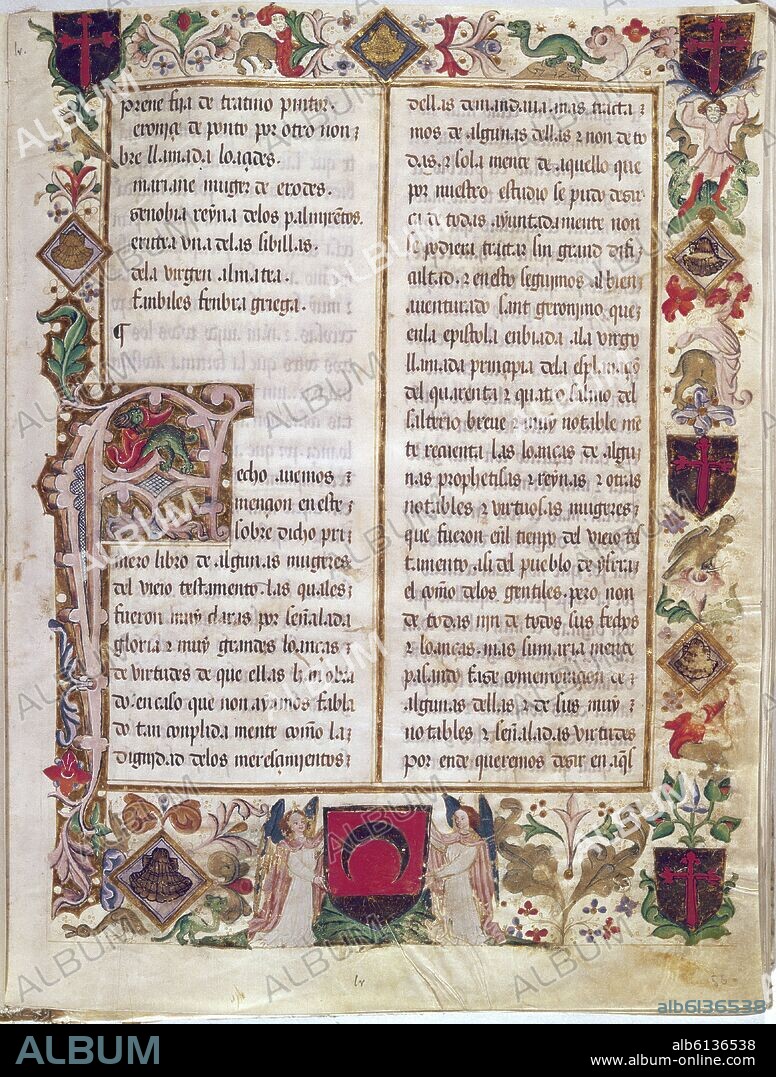 lv.
prene fija de tratino pintor.
eronice de ponto por otro non
bre llamada loaçdes.
mariane muger de erodes.
senobia reyna delos palmirenos.
eritea vna delas sibillas.
dela virgen almatea.
fanbiles fenbra griega.
¶
Fecho auemos
mençion en este
sobre dicho pri
mero libro de algunas mugeres
del viejo testamento. las quales
fueron muy claras por señalada
gloria ꝛ muy grandes loanças
de virtudes de que ellas han obra
do. en caso que non ayamos fabla
do tan conplida mente como la
dignidad delos meresçimientos
dellas demandaua. mas tracta
mos de algunas dellas ꝛ non de to
das. ꝛ sola mente de aquello que
por nuestro estudio se pudo desir
ca de todas ayuntadamente non
se podiera tractar sin grand difi
cultad. ꝛ en esto seguimos al bien
auenturado sant geronimo. que
enla epistola enbiada ala virgen
llamada prinçipia dela esplanaçion
del quarenta ꝛ quatro salmo del
salterio breue ꝛ muy notable me
te recuenta las loanças de algu
nas prophetisas ꝛ reynas. ꝛ otras
notables ꝛ virtuosas mugeres
que fueron enl tienpo del viejo tes
tamento. asi del pueblo de ysrael
como delos gentiles. pero non
de todas nin de todos sus fechos
ꝛ loanças. mas sumaria mente
pasando fase comemoraçion de
algunas dellas ꝛ de sus muy
notables ꝛ señaladas virtudes
por ende queremos desir en aql
lv
56
ALBUM
alb6136538
ALBUM
alb6136538
www.album-online.com